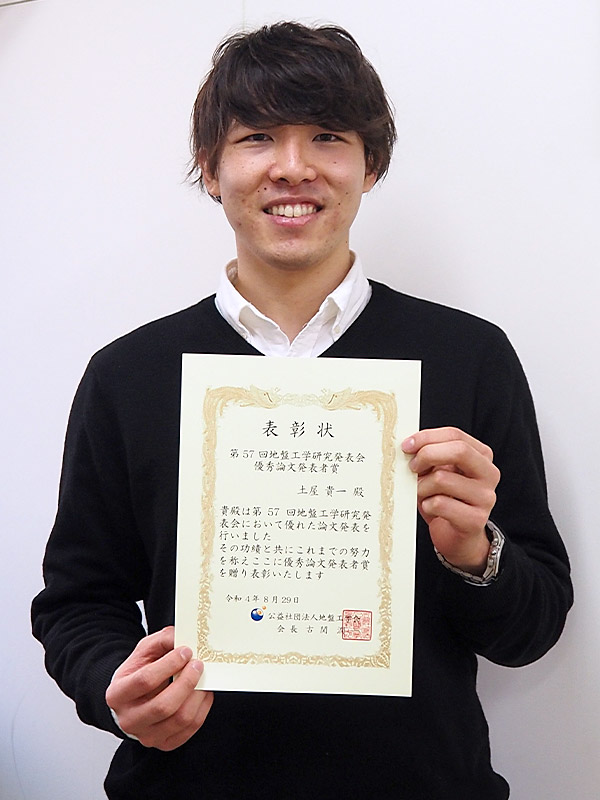 表彰状
第57回地盤工学研究発表会
優秀論文発表者賞
土屋 貴一 殿
貴殿は第57回地盤工学研究発
表会において優れた論文発表を
行いました
その功績と共にこれまでの努力
を称えここに優秀論文発表者賞
を贈り表彰いたします
令和4年8月29日
公益社団法人地盤工学会
会長 古関